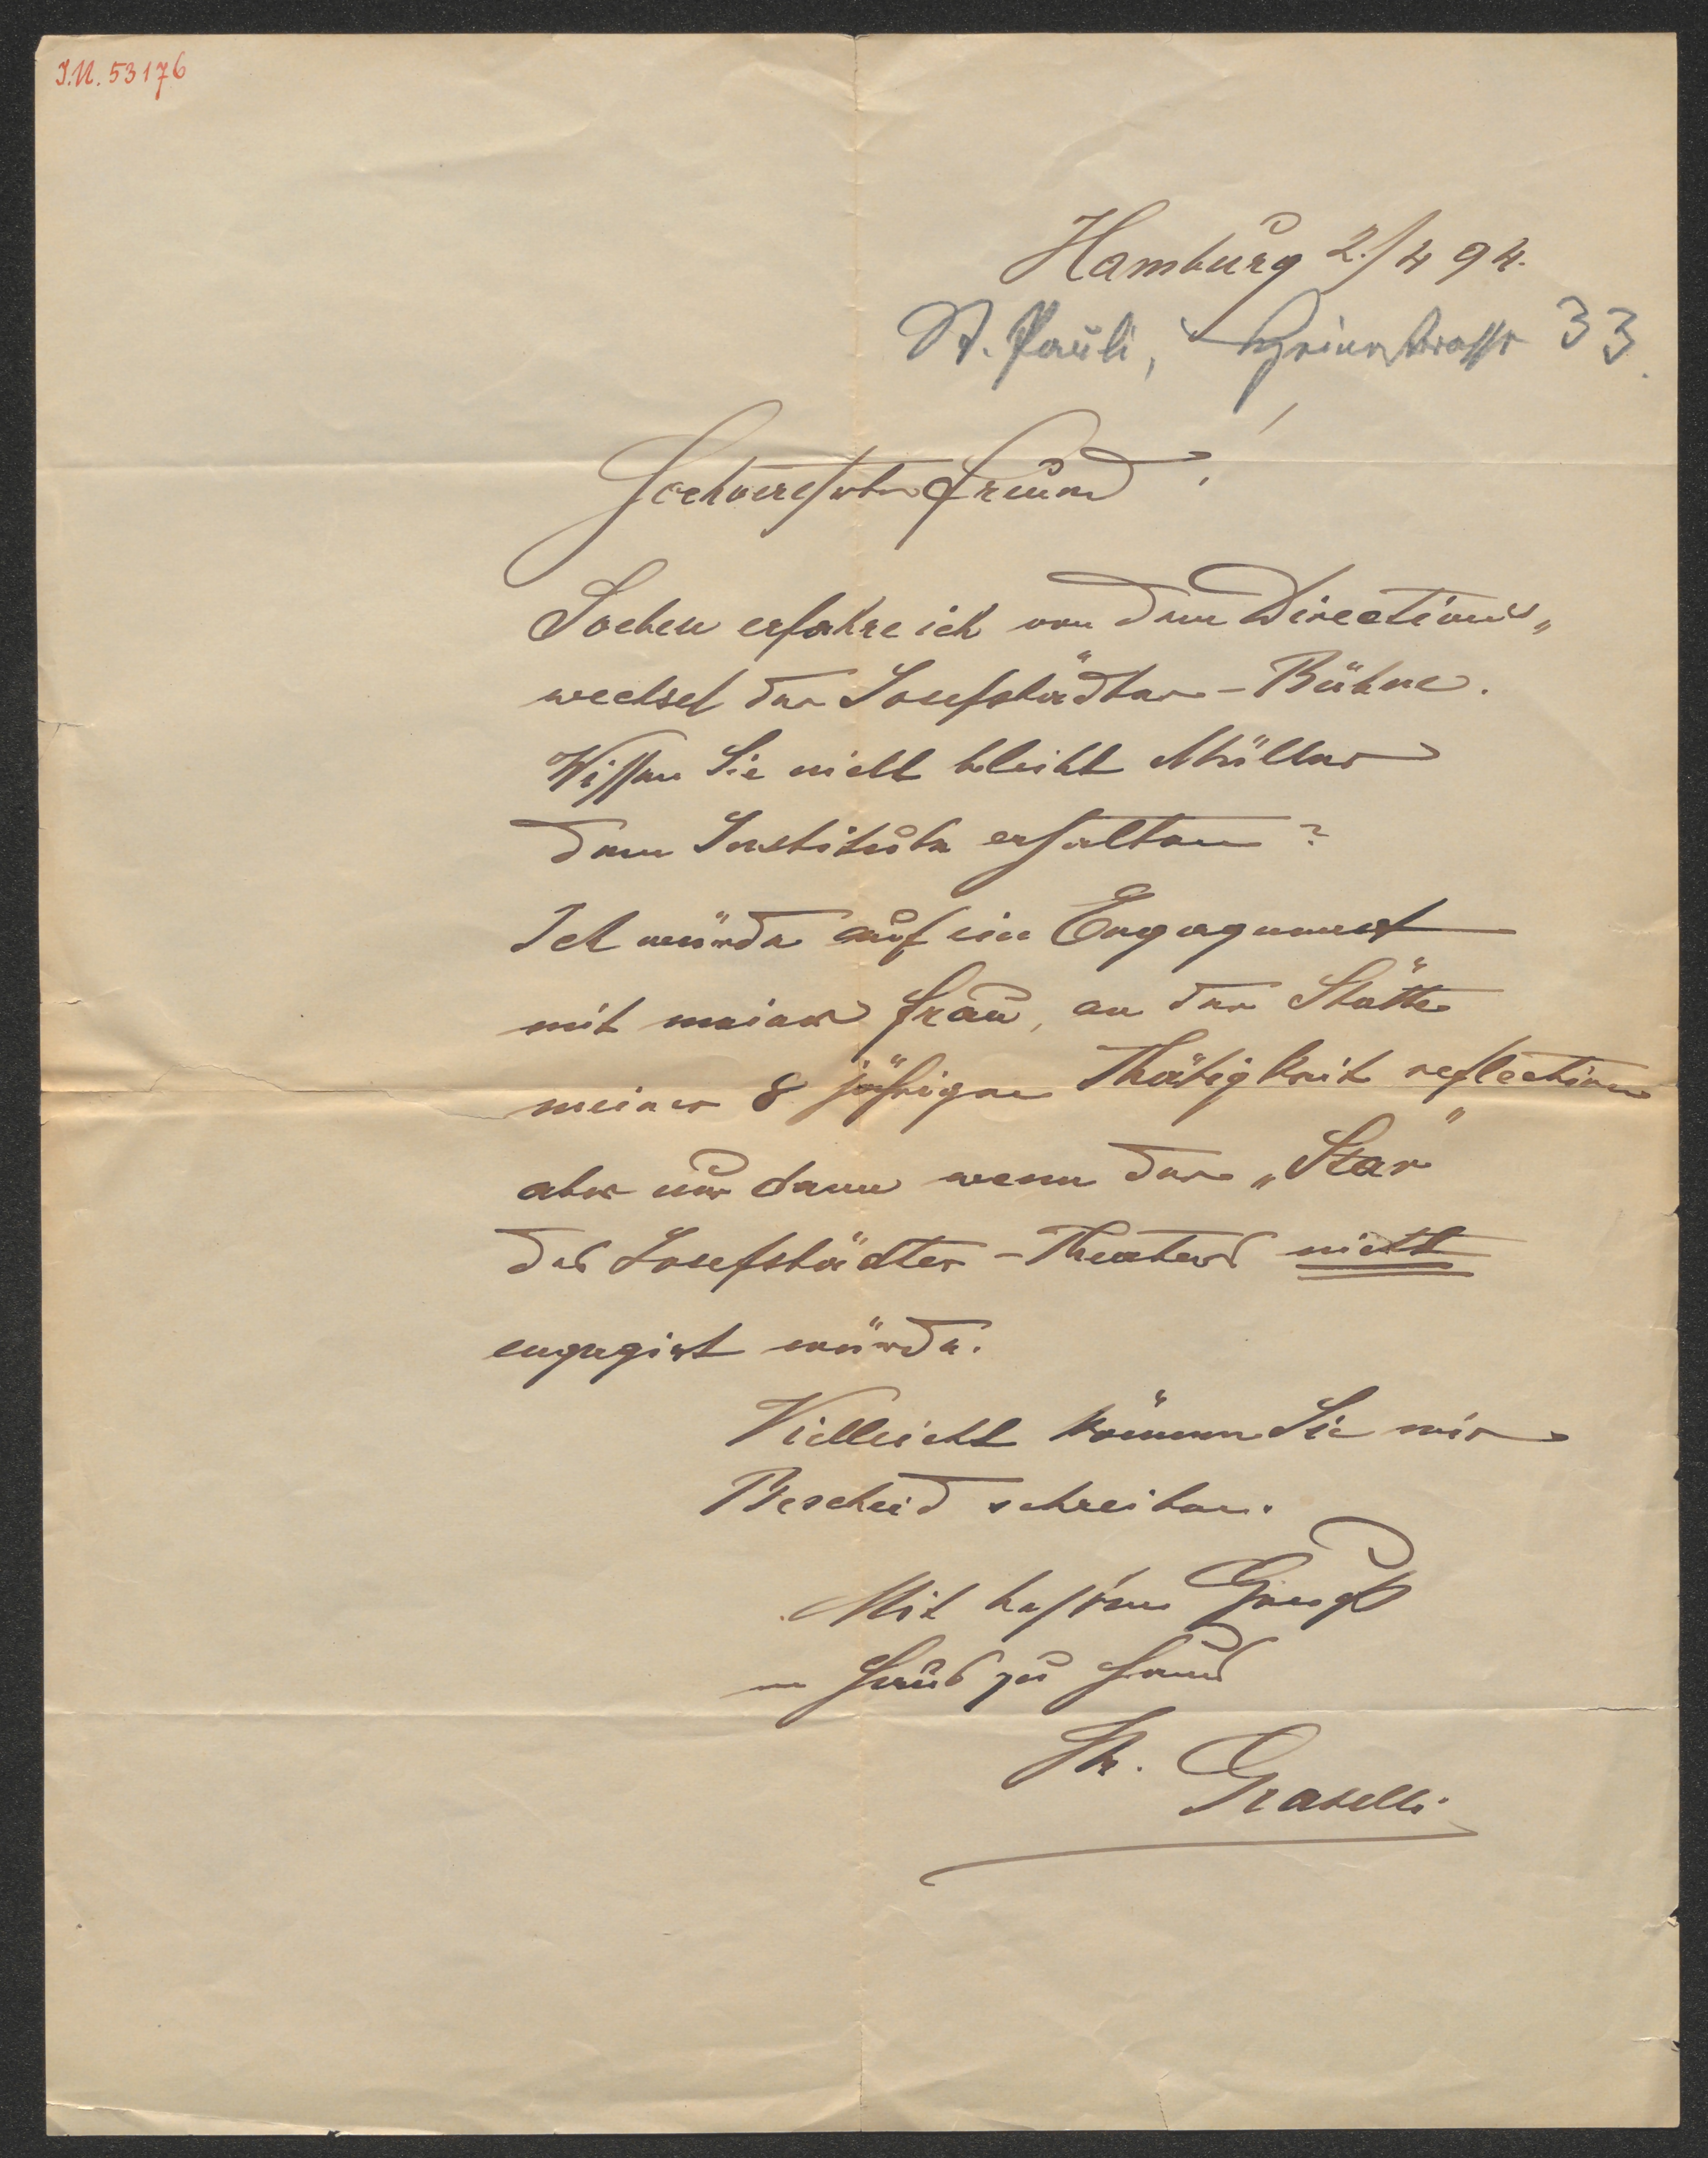 I.N. 53176
Hamburg 2./4 94.
St. Pauli, 33.
Hochverehrter Freund!
Soeben erfahre ich von dem Directions„
wechsel der Josefstädter-Bühne.
Wissen Sie nicht bleibt Müller
dem Institute erhalten?
Ich würde auf ein Engagement
mit meiner Frau, an der Stätte
meiner 8 jährigen Thätigkeit reflectiren
aber nur dann wenn der „Star"
des Josefstädter-Theaters nicht
engagirt würde.
Vielleicht können Sie mir
Bescheid schreiben.
Mit Gruß
von Haus zu Haus
Th. Graselli